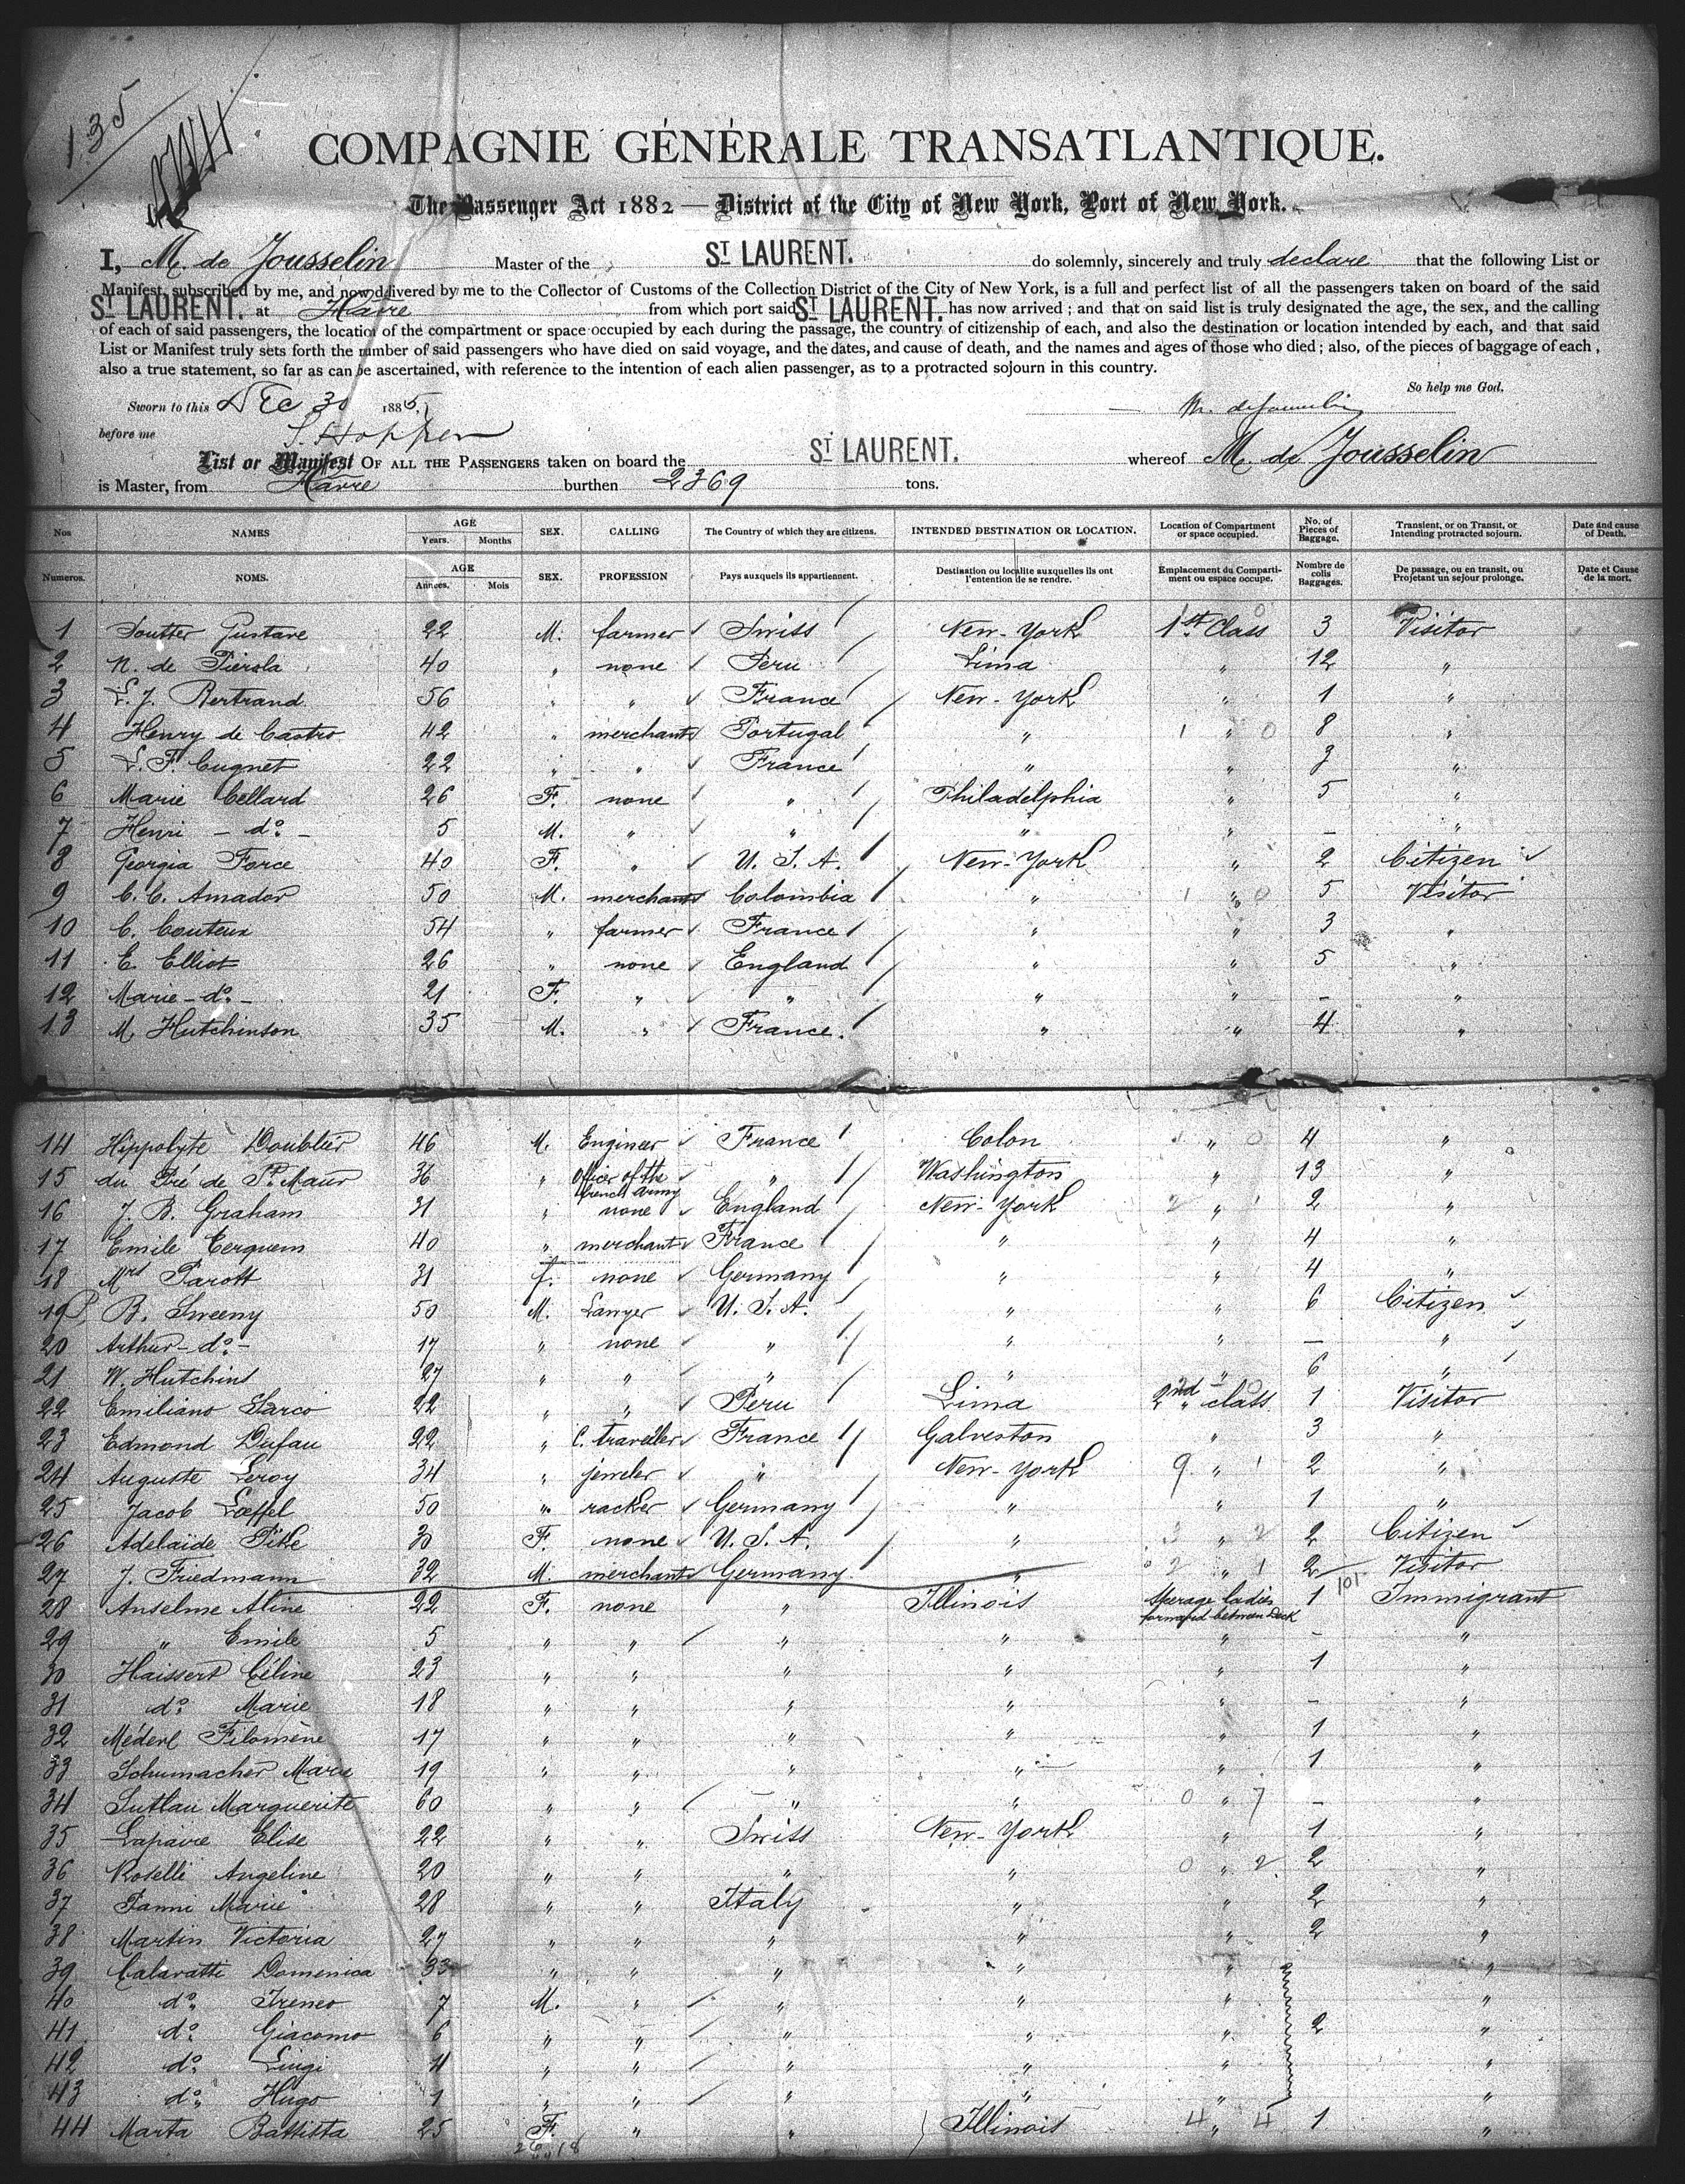 135
COMPAGNIE GÉNÉRALE TRANSATLANTIQUE.
The Passenger Act 1882 — District of the City of New York, Port of New York.
I, M. de Jousselin Master of the ST LAURENT. do solemnly, sincerely and truly declare that the following List or
Manifest, subscribed by me, and now delivered by me to the Collector of Customs of the Collection District of the City of New York, is a full and perfect list of all the passengers taken on board of the said
ST LAURENT. at Havre from which port said ST LAURENT. has now arrived; and that on said list is truly designated the age, the sex, and the calling
of each of said passengers, the location of the compartment or space occupied by each during the passage, the country of citizenship of each, and also the destination or location intended by each, and that said
List or Manifest truly sets forth the number of said passengers who have died on said voyage, and the dates, and cause of death, and the names and ages of those who died; also, of the pieces of baggage of each,
also a true statement, so far as can be ascertained, with reference to the intention of each alien passenger, as to a protracted sojourn in this country.
So help me God.
Sworn to this Dec 30 1885
before me S. Hoppen
List or Manifest OF ALL THE PASSENGERS taken on board the ST LAURENT. whereof M. de Jousselin
is Master, from Havre burthen 2369 tons.
Nos NAMES AGE Years. Months SEX. CALLING The Country of which they are citizens. INTENDED DESTINATION OR LOCATION. Location of Compartment or space occupied. No. of Pieces of Baggage. Transient, or on Transit, or Intending protracted sojourn. Date and cause of Death.
Numeros. NOMS. AGE Années. Mois SEX. PROFESSION Pays auxquels ils appartiennent. Destination ou localite auxquelles ils ont l'entention de se rendre. Emplacement du Compartiment ou espace occupe. Nombre de colis Baggages. De passage, ou en transit, ou Projetant un sejour prolonge. Date et Cause de la mort.
1 Soutter Gustave 22 M. farmer Swiss New-York 1st Class 3 Visitor
2 N. de Piérola 40 " none Peru Lima " 12 "
3 L. J. Bertrand 56 " " France New-York " 1 "
4 Henry de Castro 42 " merchant Portugal " " 8 "
5 L. F. Cugnet 22 " " France " " 3 "
6 Marie Cellard 26 F. none " Philadelphia " 5 "
7 Henri - do - 5 M. " " " " - "
8 Georgia Force 40 F. " U. S. A. New-York " 2 Citizen
9 C. C. Amador 50 M. merchant Colombia " " 5 Visitor
10 C. Couteux 54 " farmer France " " 3 "
11 E. Elliot 26 " none England " " 5 "
12 Marie - do - 21 F. " " " " - "
13 M. Hutchinson 35 M. " France. " " 4 "
14 Hippolyte Doublier 46 M. Engineer France Colon " 4 "
15 du Pré de St Maur 36 " Officer of the french army " Washington " 13 "
16 J. B. Graham 31 " none England New-York " 2 "
17 Emile Cerquem 40 " merchant France " " 4 "
18 Mrs Parott 31 f. none Germany " " 4 "
19 B. Sweeny 50 M. Lawyer U. S. A. " " 6 Citizen
20 Arthur - do - 17 " none " " " - "
21 W. Hutchins 27 " " " " " 6 "
22 Emiliano Sarco 22 " " Peru Lima 2nd class 1 Visitor
23 Edmond Dufau 22 " C. traveller France Galveston " 3 "
24 Auguste Leroy 34 " jeweler " New-York " 2 "
25 Jacob Lœffel 50 " racker Germany " " 1 "
26 Adelaïde Pike 30 F. none U. S. A. " " 2 Citizen
27 J. Friedmann 32 M. merchant Germany " " 2 Visitor
28 Anselme Aline 22 F. none " Illinois Steerage ladies forward between Deck 1 Immigrant
29 " Emile 5 " " " " " - "
30 Haissert Céline 23 " " " " " 1 "
31 do Marie 18 " " " " " - "
32 Méderl Filomène 17 " " " " " 1 "
33 Schumacher Marie 19 " " " " " 1 "
34 Sutlau Marguerite 60 " " " " " - "
35 Lapaire Elise 22 " " Swiss New-York " 1 "
36 Roselli Angeline 20 " " " " " 2 "
37 Panni Marie 28 " " Italy " " 2 "
38 Martin Victoria 27 " " " " " 2 "
39 Calavatti Domenica 33 " " " " " "
40 do Ireneo 7 M. " " " " "
41 do Giacomo 6 " " " " " 2 "
42 do Luigi 4 " " " " " "
43 do Hugo 1 " " " " " "
44 Marta Battista 25 F. " " Illinois " 1 "